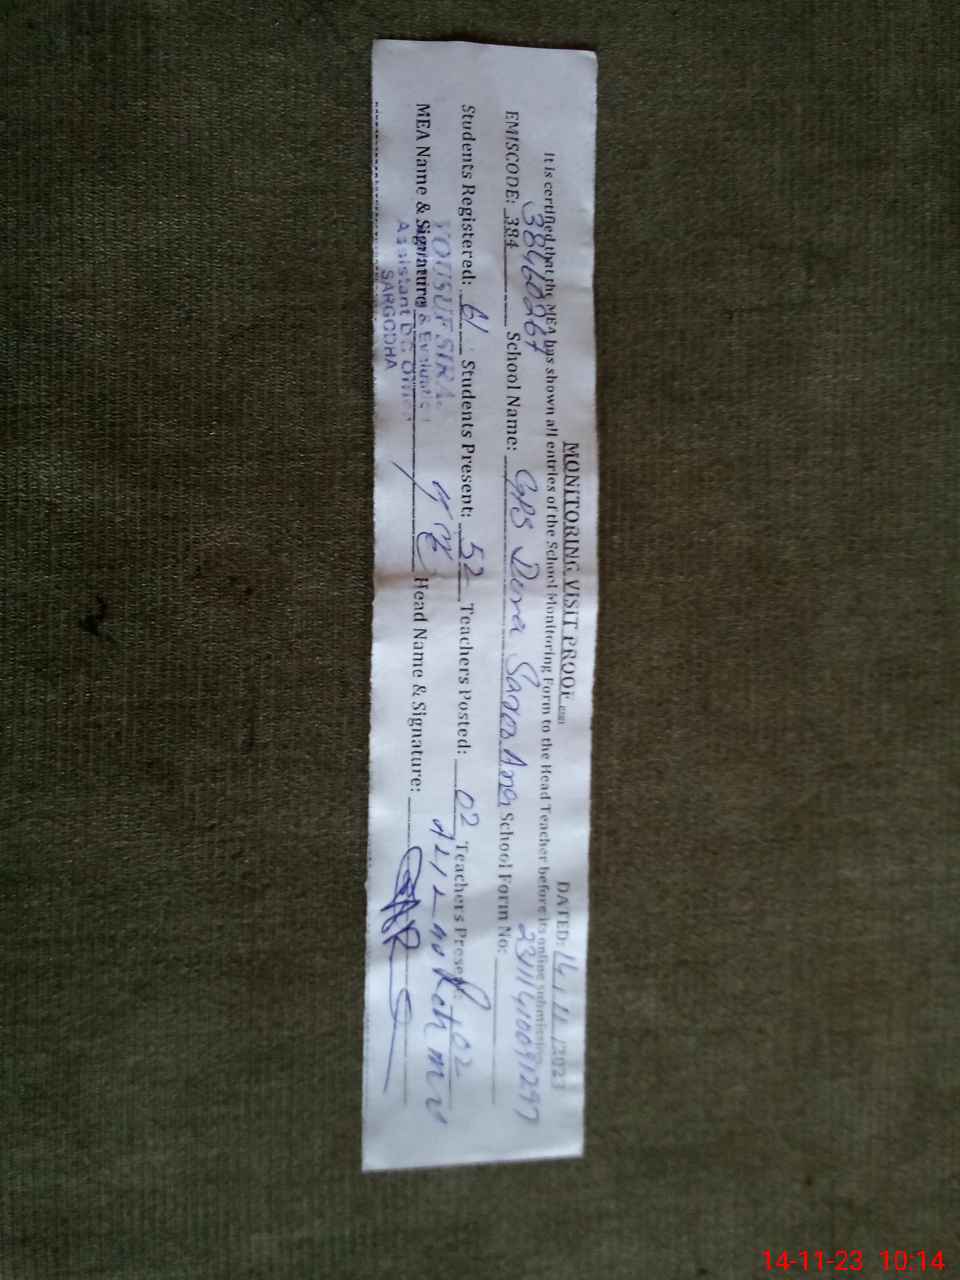 MONITORING VISIT PROOF DATED: 14/11/2023
It is certified that the MEA has shown all entries of the School Monitoring Form to the Head Teacher before its online submission
38460267 23111410091297
EMISCODE: 384 School Name: GPS Dera School Form No:
Students Registered: 61 Students Present: 52 Teachers Posted: 02 Teachers Present: 02
YOUSUF
MEA Name & Signature Head Name & Signature:
& Evaluation
Assistant D.C Office
SARGODHA
14-11-23 10:14